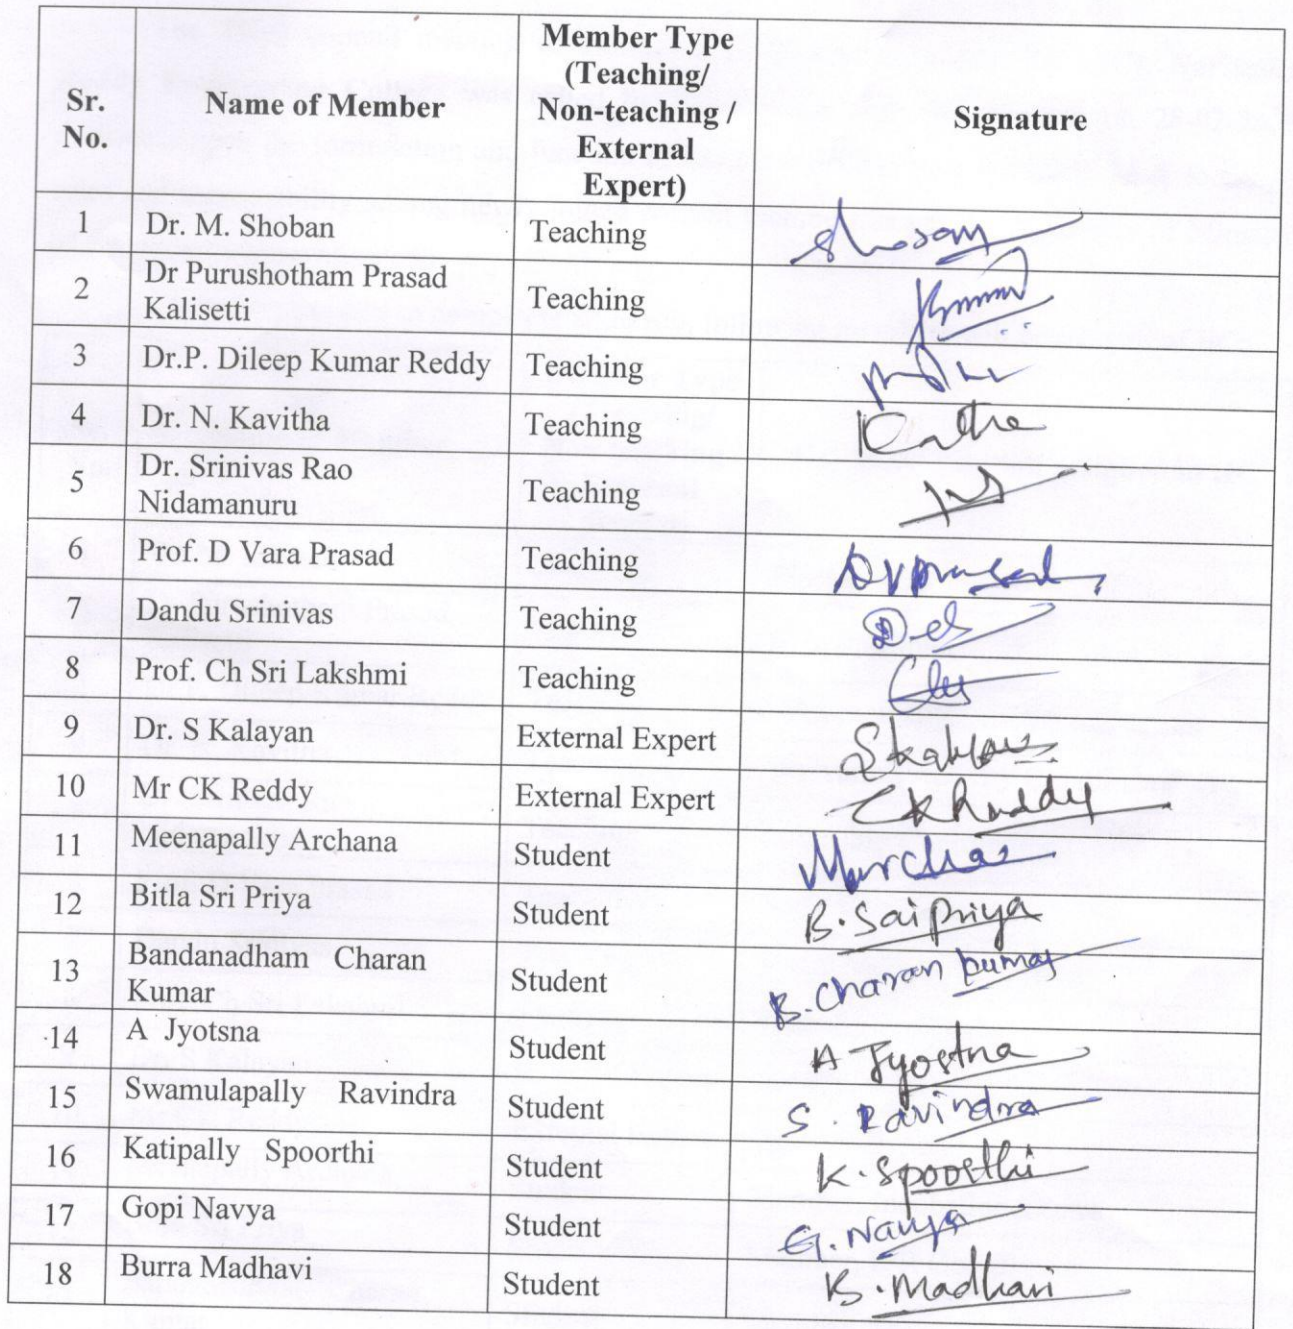 Sr. No. Name of Member Member Type (Teaching/ Non-teaching / External Expert) Signature
1 Dr. M. Shoban Teaching
2 Dr Purushotham Prasad Kalisetti Teaching
3 Dr.P. Dileep Kumar Reddy Teaching
4 Dr. N. Kavitha Teaching
5 Dr. Srinivas Rao Nidamanuru Teaching
6 Prof. D Vara Prasad Teaching DVprasad
7 Dandu Srinivas Teaching
8 Prof. Ch Sri Lakshmi Teaching
9 Dr. S Kalayan External Expert
10 Mr CK Reddy External Expert CKReddy
11 Meenapally Archana Student
12 Bitla Sri Priya Student B. Saipriya
13 Bandanadham Charan Kumar Student B. Charan kumar
14 A Jyotsna Student A Jyostna
15 Swamulapally Ravindra Student S. Ravindra
16 Katipally Spoorthi Student K. Spoorthi
17 Gopi Navya Student G. Navya
18 Burra Madhavi Student B. Madhavi